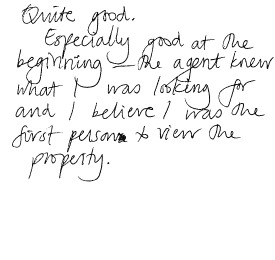 Quite good.
Especially good at the
beginning – the agent knew
what I was looking for
and I believe I was the
first person to view the
property.